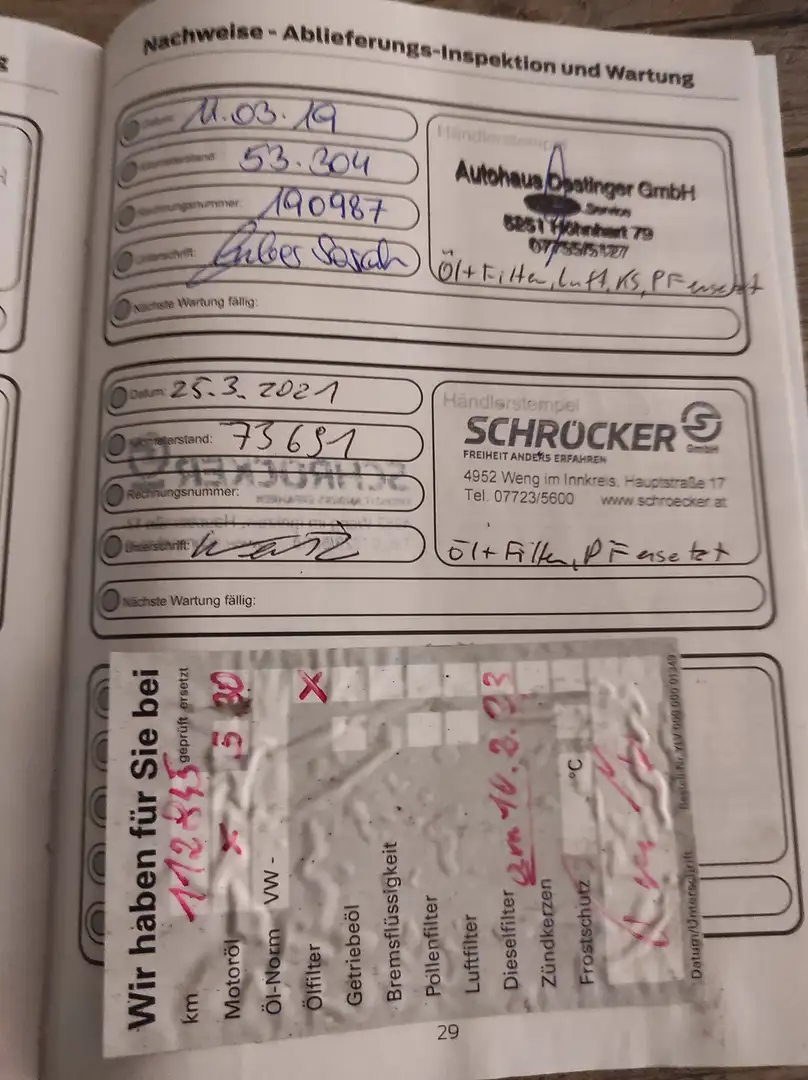 Nachweise - Ablieferungs-Inspektion und Wartung
Datum: 11.03.19
Kilometerstand: 53.304
Rechnungsnummer: 190987
Unterschrift:
Nächste Wartung fällig:
Händlerstempel
Autohaus GmbH
Service
Höhnhart 79
07755/5127
Öl+Filter, Luft, KS, PF ersetzt
Datum: 25.3.2021
Kilometerstand: 73691
Rechnungsnummer:
Unterschrift:
Nächste Wartung fällig:
Händlerstempel
SCHRÖCKER GmbH
FREIHEIT ANDERS ERFAHREN
4952 Weng im Innkreis, Hauptstraße 17
Tel. 07723/5600 www.schroecker.at
Öl+Filter, PF ersetzt
Wir haben für Sie bei
km 112845 geprüft ersetzt
Motoröl x 5 30
Öl-Norm VW -
Ölfilter X
Getriebeöl
Bremsflüssigkeit
Pollenfilter
Luftfilter
Dieselfilter
Zündkerzen
Frostschutz °C
Datum/Unterschrift
29